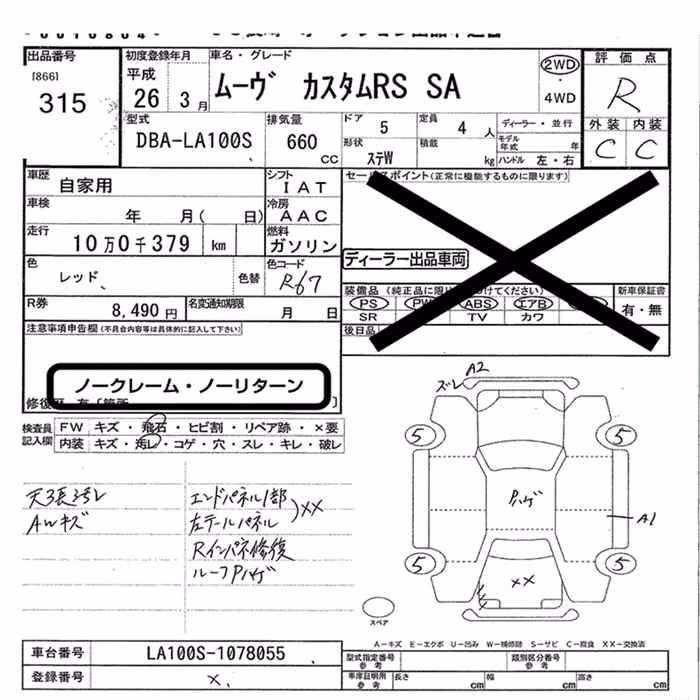 出品番号
[866]
315
初度登録年月
平成
26 3月
車名・グレード
ムーヴ カスタムRS SA
2WD
・
4WD
評価点
R
外装 内装
C C
型式
DBA-LA100S
排気量
660
CC
ドア
5
定員
4 人
ディーラー・並行
モデル
年式 年
形状
ステW
積載
kg
ハンドル 左・右
車歴
自家用
シフト
IAT
車検
年 月( 日)
冷房
AAC
走行
10万0千379 km
燃料
ガソリン
色
レッド、
色替
色コード
R67
R券
8,490 円
名変通知期限
月 日
セールスポイント(正常に機能するものに限ります)
ディーラー出品車両
PS PW ABS エアB
SR TV カワ
新車保証書
有・無
後日品
注意事項申告欄(不具合内容等は具体的に記入して下さい)
ノークレーム・ノーリターン
検査員
記入欄
FW キズ・飛石・ヒビ割・リペア跡・×要
内装 キズ・汚レ・コゲ・穴・スレ・キレ・破レ
天張汚レ
AWキズ
エンドパネル1部
左テールパネル
)××
Rインパネ修復
ルーフPハゲ
A2
ズレ
5 5
Pハゲ
A1
5 5
××
スペア
A－キズ E－エクボ U－凹み W－補修跡 S－サビ C－腐食 XX－交換済
車台番号
LA100S-1078055
登録番号
×、
型式指定番号
参考
類別区分番号
参考
車庫証明用
参考
長さ cm
幅 cm
高さ cm